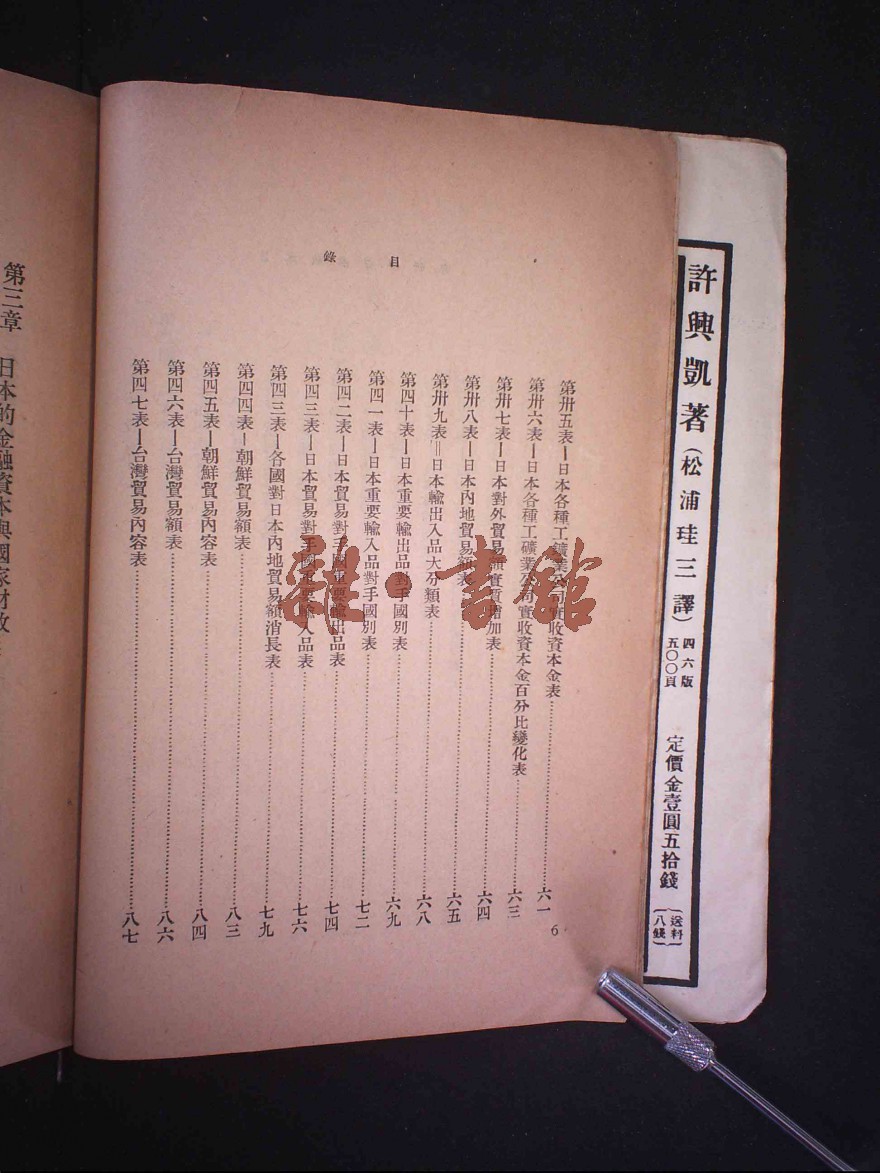 目錄
第卅五表—日本各種工礦業公司實收資本金表……六一
第卅六表—日本各種工礦業公司實收資本金百分比變化表……六三
第卅七表—日本對外貿易額實質增加表……六四
第卅八表—日本內地貿易額表……六五
第卅九表—日本輸出入品大分類表……六八
第四十表—日本重要輸出品對手國別表……六九
第四一表—日本重要輸入品對手國別表……七二
第四二表—日本貿易對手國重要輸出品表……七四
第四三表—日本貿易對手國重要輸入品表……七六
第四三表—各國對日本內地貿易額消長表……七九
第四四表—朝鮮貿易額表……八三
第四五表—朝鮮貿易內容表……八四
第四六表—台灣貿易額表……八六
第四七表—台灣貿易內容表……八七
6
第三章 日本的金融資本與國家財政
許興凱著(松浦珪三譯)
四六版
五〇〇頁
定價金壹圓五拾錢
(送料八錢)
雜·書館